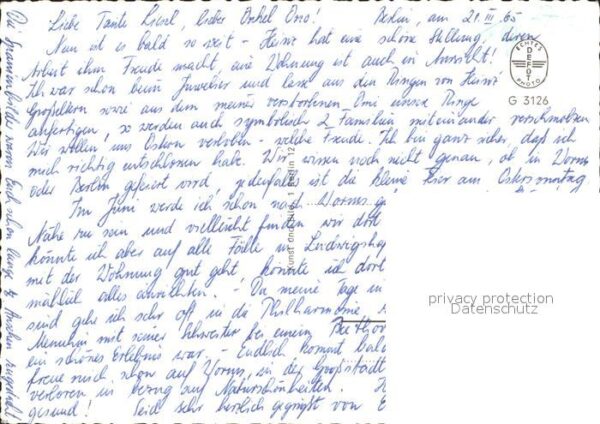 Liebe Tante Liesel, lieber Onkel Otto! Berlin, am 21. III. 65
Nun ist es bald so weit - Heinz hat eine schöne Stellung, deren
Arbeit ihm Freude macht, eine Wohnung ist auch in Aussicht!
Ich war schon beim Juwelier und lasse aus den Ringen von Heinz'
Großeltern sowie aus dem meiner verstorbenen Omi unsre Ringe
anfertigen, so werden auch symbolisch 2 Familien miteinander verschmolzen
Wir wollen uns Ostern verloben - welche Freude. Ich bin ganz sicher, daß ich
mich richtig entschlossen habe. Wir wissen noch nicht genau, ob in Worms
oder Berlin gefeiert wird, jedenfalls ist die kleine Feier am Ostersonntag
Im Juni werde ich schon nach Worms
Nähe zu sein und vielleicht finden wir dort
könnte ich aber auf alle Fälle in Ludwigsha
mit der Wohnung gut geht, könnte ich dort
mählich alles einrichten. - Da meine Tage in
sind gehe ich sehr oft in die Philharmonie
Menuhin mit seiner Schwester bei einem Beethov
ein schönes Erlebnis war. - Endlich kommt bald
freue mich schon auf Worms, in der Großstadt
verloren in bezug auf Naturschönheiten.
gesund! Seid sehr herzlich gegrüßt von E
ECHTES
DEFOT
PHOTO
G 3126
Kunst und Bild, 1 Berlin 12
privacy protection
Datenschutz